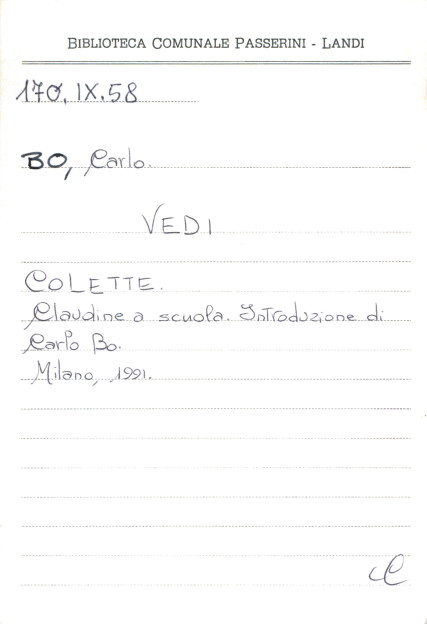 BIBLIOTECA COMUNALE PASSERINI - LANDI
170.IX.58
BO, Carlo.
VEDI
COLETTE.
Claudine a scuola. Introduzione di
Carlo Bo.
Milano, 1991.